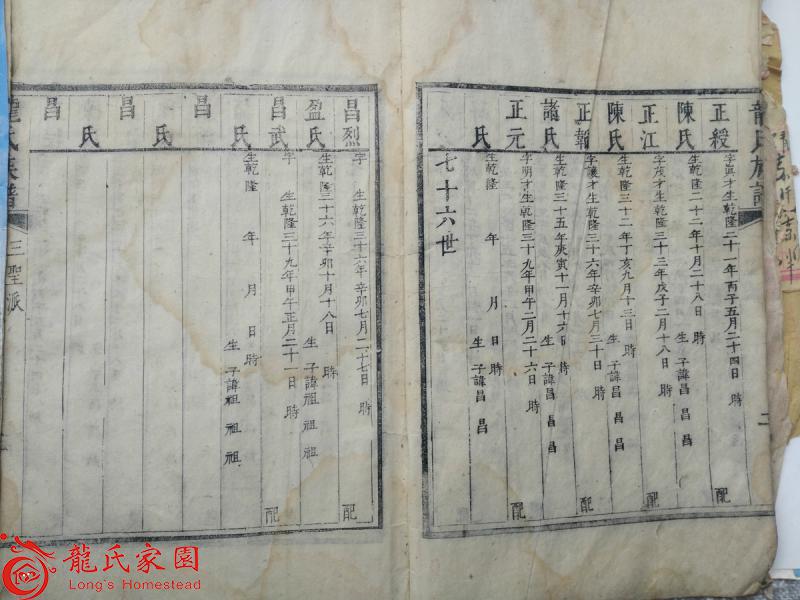 龍氏族譜
二
正綬 字眞才生乾隆二十一年丙子五月二十四日 時 配
陳氏 生乾隆二十二年十月二十八日 時 生子諱昌昌昌
正江 字成才生乾隆三十三年戊子二月十八日 時 配
陳氏 生乾隆三十二年丁亥九月十三日 時 生子諱昌昌昌
正朝 字讓才生乾隆三十六年辛卯七月三十日 時 配
諸氏 生乾隆三十五年庚寅十一月十六日 時 生子諱昌昌昌
正元 字明才生乾隆三十九年甲午二月二十六日 時 配
氏 生乾隆 年 月 日 時 生子諱昌昌
七十六世
昌烈 字 生乾隆三十六年辛卯七月二十七日 時 配
盈氏 生乾隆三十六年辛卯十月十八日 時 生子諱祖祖祖
昌武 字 生乾隆三十九年甲午正月二十一日 時 配
氏 生乾隆 年 月 日 時 生子諱祖祖祖
昌
氏
昌
氏
昌
龍氏族譜
三聖派
龍氏家園
Long's Homestead